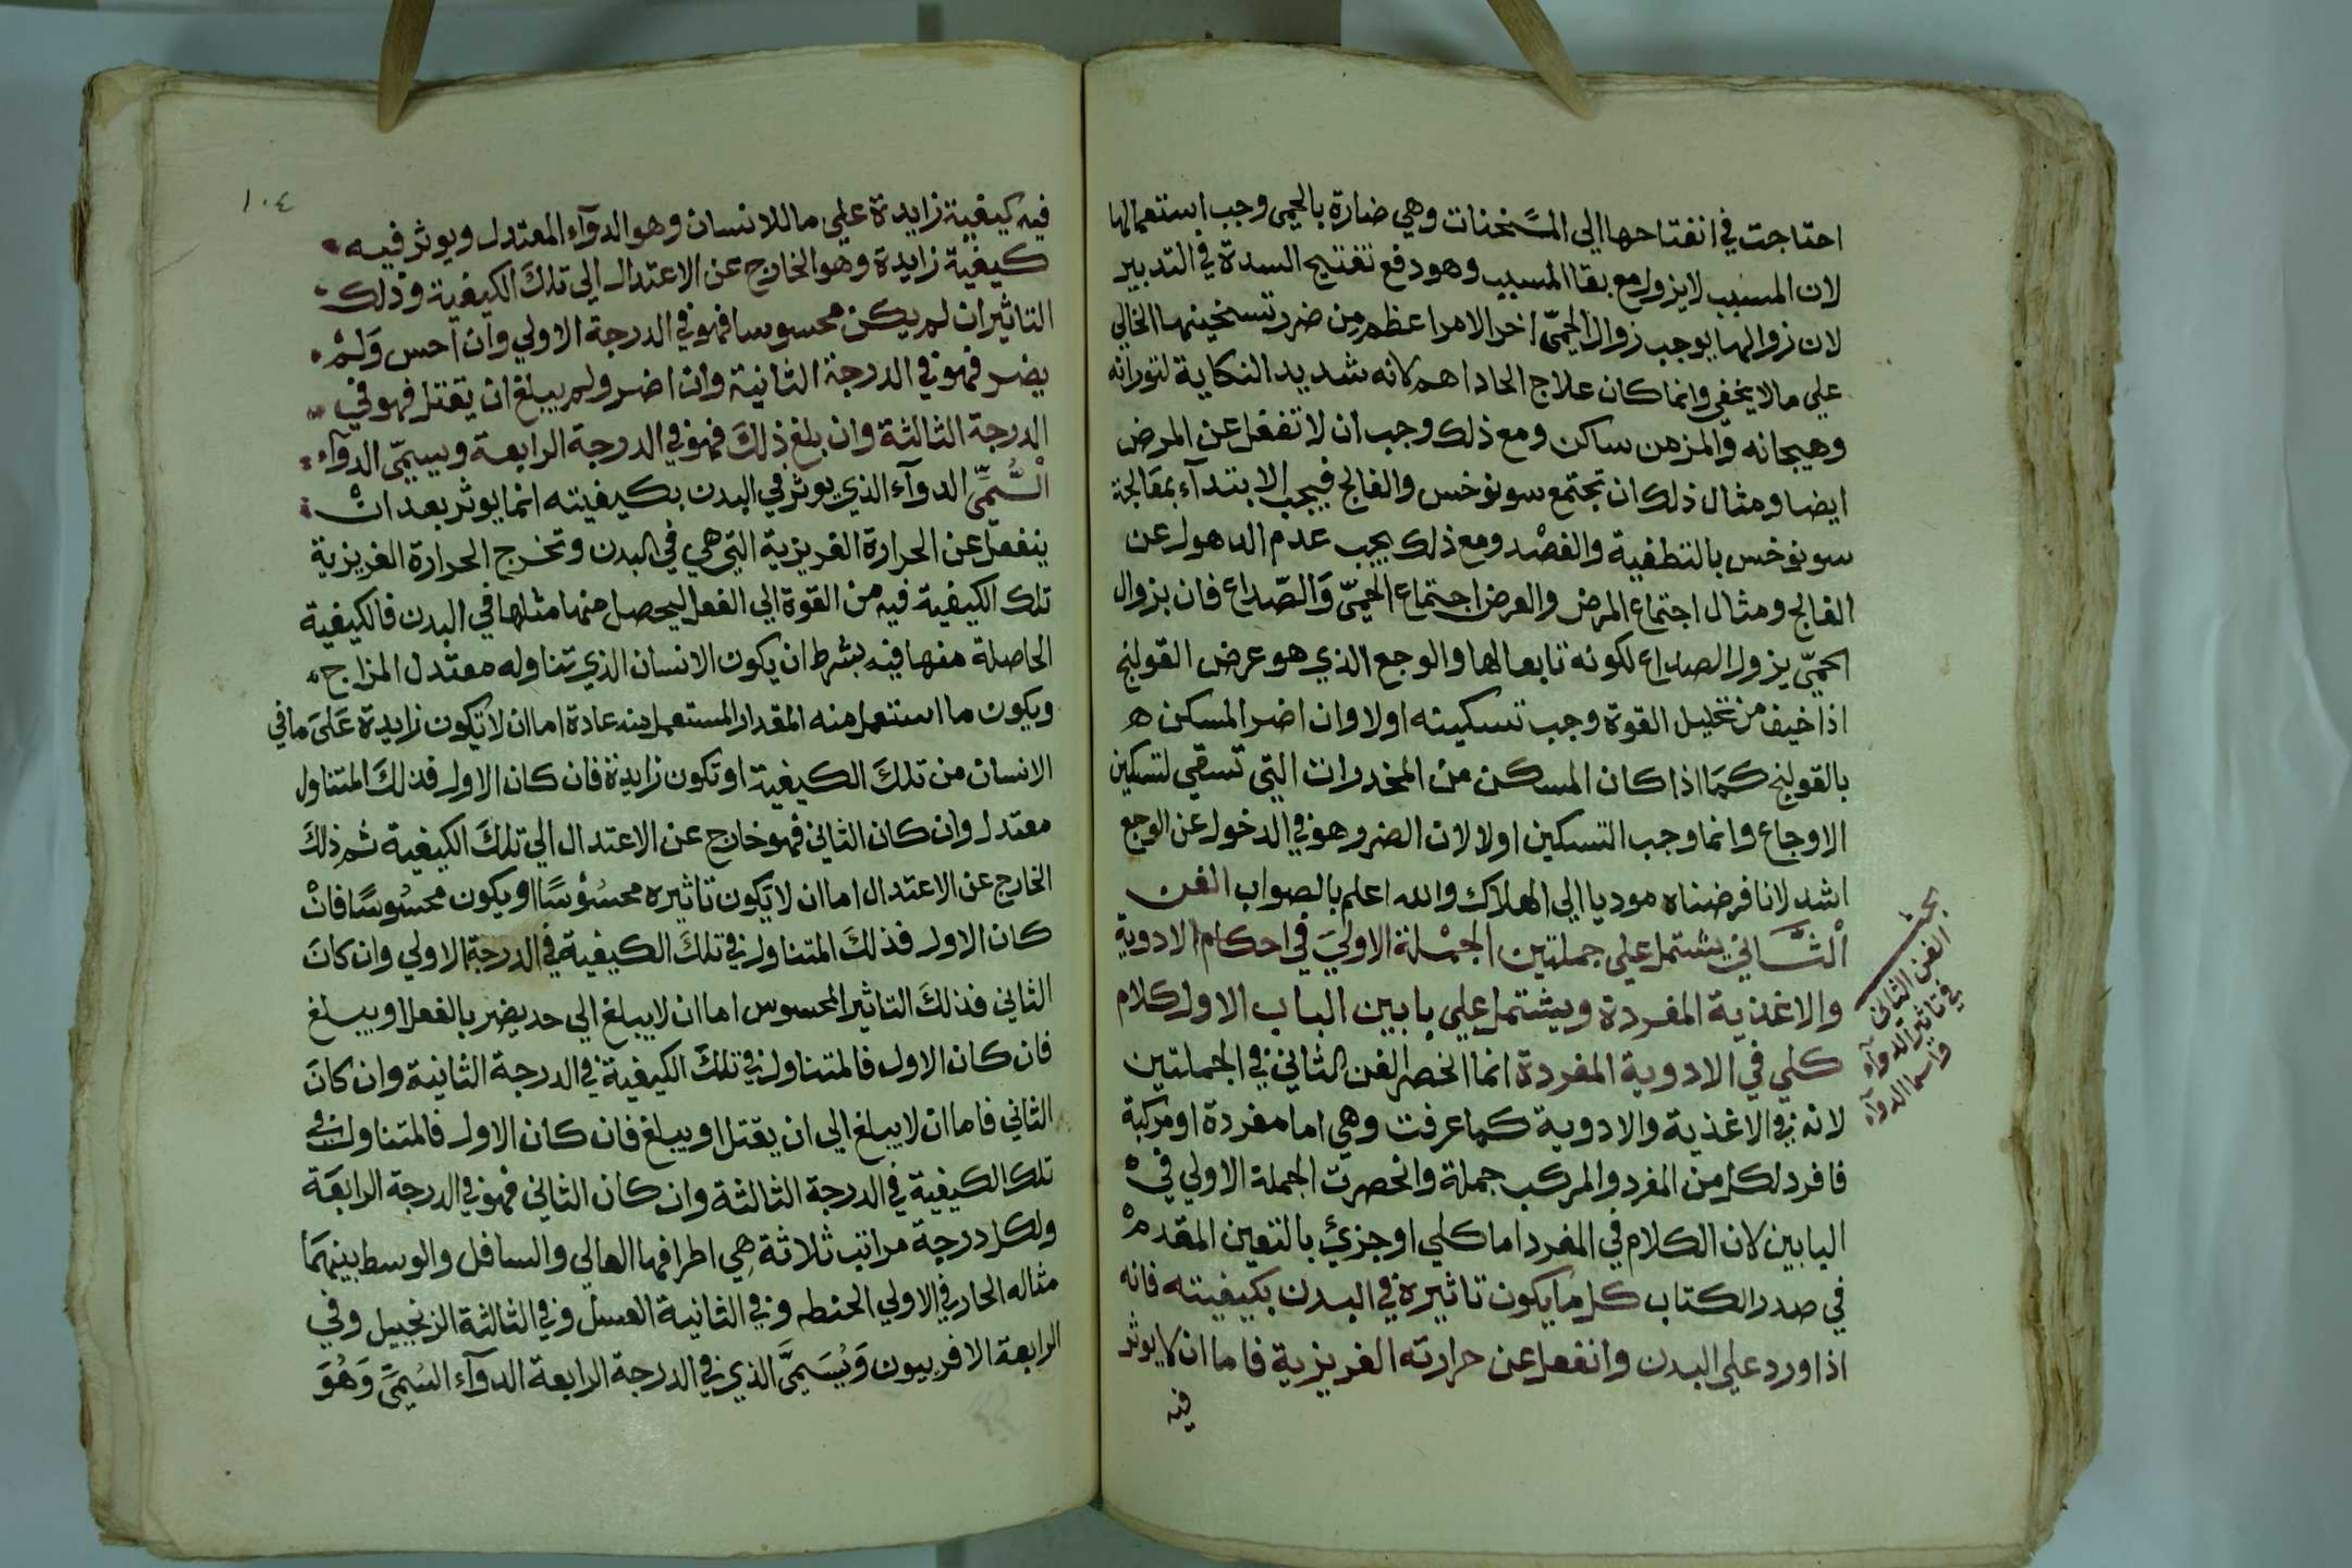 احتاجت في انفتاحها الي المسخنات وهي ضارة بالحمي وجب استعمالها
لان المسبب لا يزول مع بقا المسبب وهو دفع تفتيح السدة في التدبير
لان زوالها يوجب زوال الحمّي اخر الامر اعظم من ضرر تسخينها الحالي
علي ما لا يخفي وانما كان علاج الحاد اهم لانه شديد النكاية لثورانه
وهيجانه والمزمن ساكن ومع ذلك وجب ان لا تغفل عن المرض
ايضا ومثال ذلك ان تجتمع سونوخس والفالج فيجب الابتدآء بمعالجة
سونوخس بالتطفية والفصد ومع ذلك يجب عدم الدهول عن
الفالج ومثال اجتماع المرض والعرض اجتماع الحمّي والصّداع فان بزوال
الحمّي يزول الصداع لكونه تابعا لها والوجع الذي هو عرض القولنج
اذا خيف من تحليل القوة وجب تسكينه اولا وان اضر المسكن ه
بالقولنج كما اذا كان المسكن من المخدرات التي تسقي لتسكين
الاوجاع وانما وجب التسكين اولا لان الضرر هو في الدخول عن الوجع
اشد لانا فرضناه موديا الي الهلاك والله اعلم بالصواب الفن
الثَّاني يشتمل علي جملتين الجمْلة الاولي في احكام الادوية
والاغذية المفردة ويشتمل علي بابين الباب الاول كلام
كلي في الادوية المفردة انما انحصر الفن الثاني في الجملتين
لانه في الاغذية والادوية كما عرفت وهي اما مفردة او مركبة
فافرد لكل من المفرد والمركب جملة وانحصرت الجملة الاولي في
البابين لان الكلام في المفرد اما كلي او جزئ بالتعين المقدم
في صدر الكتاب كل ما يكون تاثيره في البدن بكيفيته فانه
اذا ورد علي البدن وانفعل عن حرارته الغريزية فاما ان لا يوثر
فيه
بحث
الفن الثاني
في تاثير الدوآء
واسما الدوآء
١٠٤
فيه كيفية زايدة علي ما للانسان وهو الدوآء المعتدل ويوثر فيه
كيفية زايدة وهو الخارج عن الاعتدال الي تلكَ الكيفية وذلك
التاثير ان لم يكن محسوسا فهو في الدرجة الاولي وان احس وَلمْ
يضر فهو في الدرجة الثانية وان اضر ولم يبلغ ان يقتل فهو في
الدرجة الثالثة وان بلغ ذلكَ فهو في الدرجة الرابعة ويسمّي الدوآء
السُّمِّي الدوآء الذي يوثر في البدن بكيفيته انما يوثر بعد انْ
ينفعل عن الحرارة الغريزية التي هي في البدن وتخرج الحرارة الغريزية
تلك الكيفية فيه من القوة الي الفعل ليحصل منها مثلها في البدن فالكيفية
الحاصلة منها فيه بشرط ان يكون الانسان الذي تناوله معتدل المزاج
ويكون ما استعمل منه المقدار المستعمل منه عادة اما ان لا تكون زايدة عَلىَ ما في
الانسان من تلكَ الكيفية او تكون زايدة فان كان الاول فذلكَ المتناول
معتدل وان كان الثاني فهو خارج عن الاعتدال الي تلكَ الكيفية ثم ذلكَ
الخارج عن الاعتدال اما ان لا يكون تاثيره محسُوْسًا او يكون محسُوسًا فانْ
كان الاول فذلكَ المتناول في تلكَ الكيفية في الدرجة الاولي وان كانَ
الثاني فذلكَ التاثير المحسوس اما ان لا يبلغ الي حد يضر بالفعل او يبلغ
فان كان الاول فالمتناول في تلكَ الكيفية في الدرجة الثانية وان كانَ
الثاني فاما ان لا يبلغ الي ان يقتل او يبلغ فان كان الاول فالمتناول في
تلك الكيفية في الدرجة الثالثة وان كان الثاني فهو في الدرجة الرابعَة
ولكل درجة مراتب ثلاثة هي اطرافها العالي والسافل والوسط بينهمَا
مثاله الحار في الاولي الحنطه وفي الثانية العسل وفي الثالثة الزنجبيل وفي
الرابعة الافربيون وَيُسَمَّي الذي في الدرجة الرابعة الدوآء السُمَّي وَهُوَ